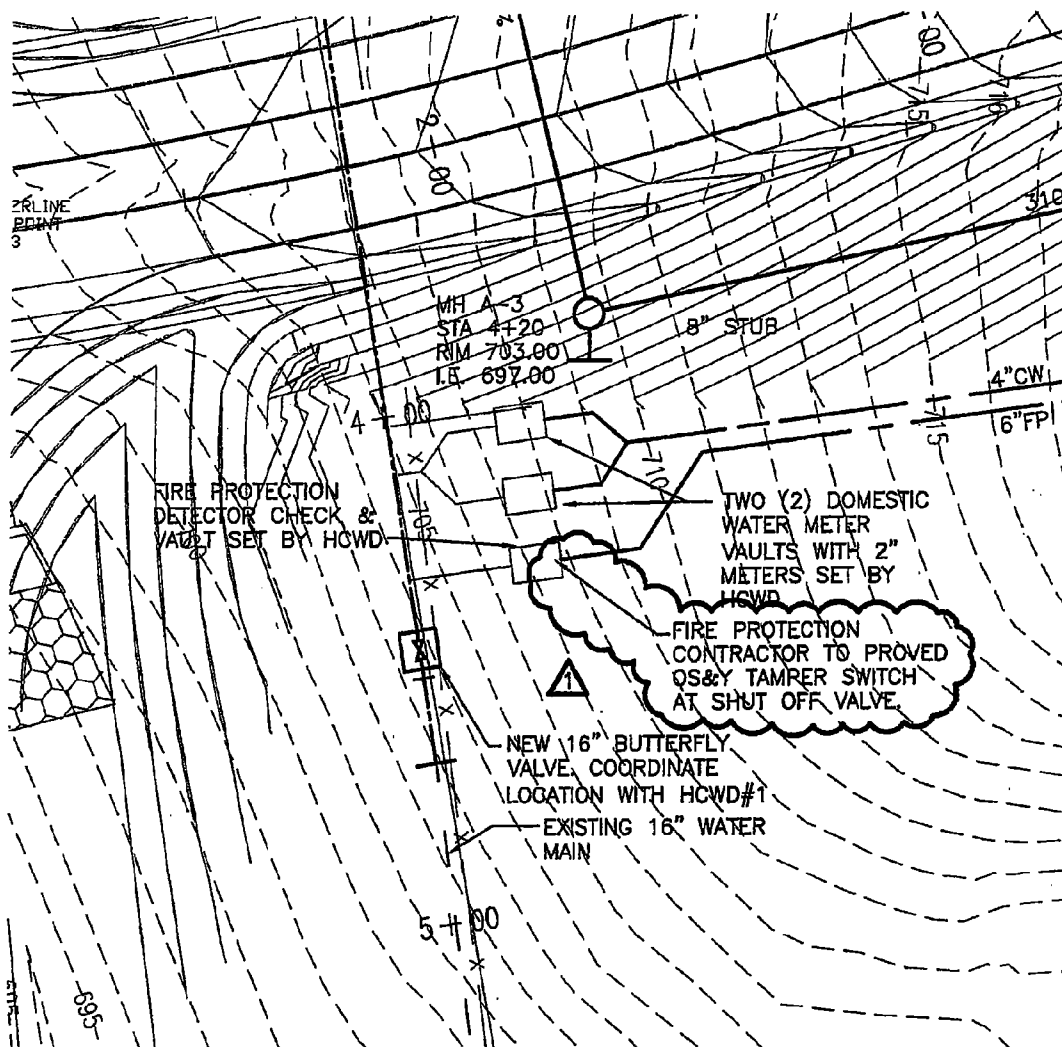 2+00
00
715
716
ERLINE
POINT
3
310
MH A-3
STA 4+20
RIM 703.00
I.E. 697.00
8" STUB
4"CW
6"FP
715
4+00
710
705
FIRE PROTECTION
DETECTOR CHECK &
VAULT SET BY HCWD
TWO (2) DOMESTIC
WATER METER
VAULTS WITH 2"
METERS SET BY
HCWD
FIRE PROTECTION
CONTRACTOR TO PROVED
OS&Y TAMPER SWITCH
AT SHUT OFF VALVE.
1
NEW 16" BUTTERFLY
VALVE. COORDINATE
LOCATION WITH HCWD#1
EXISTING 16" WATER
MAIN
5+00
695